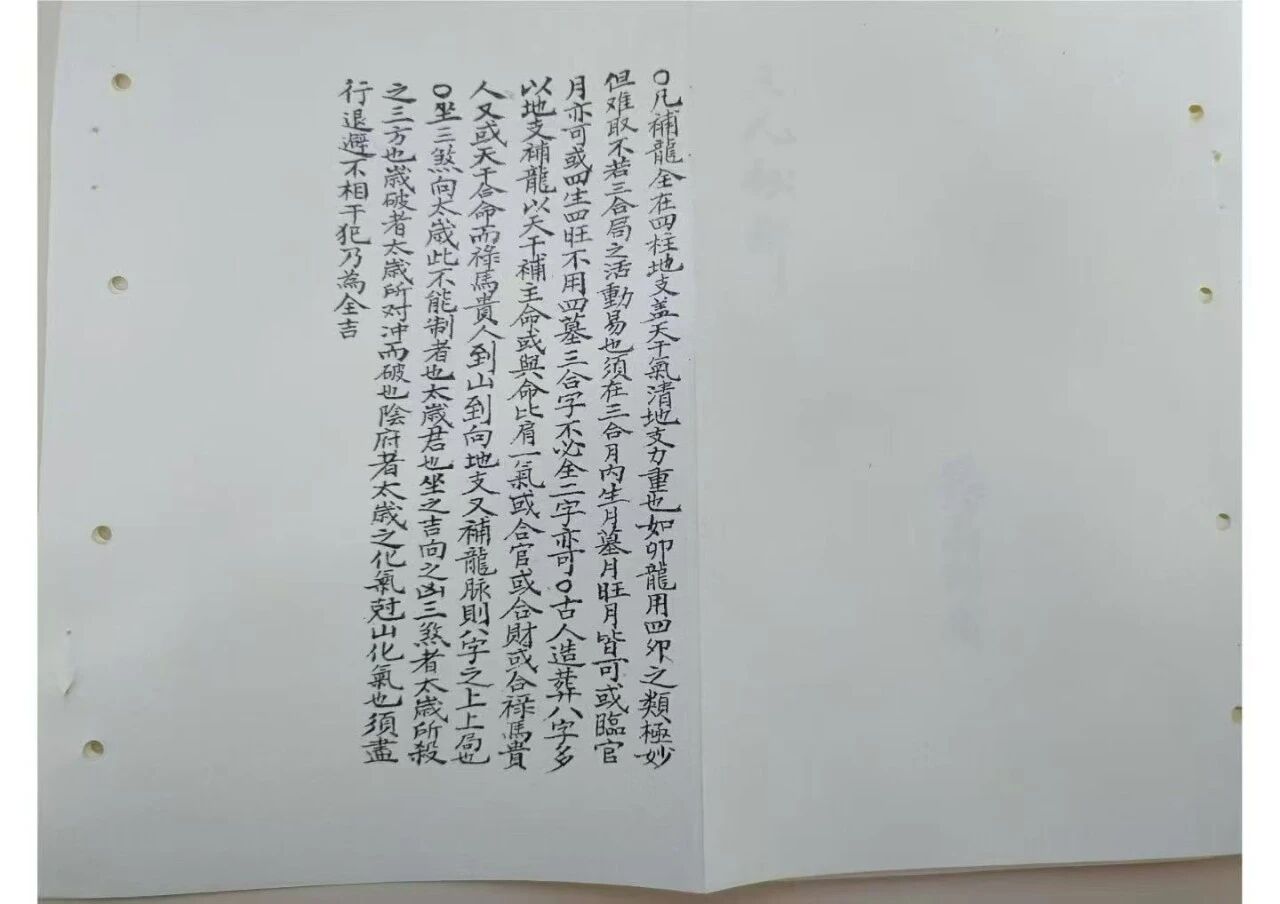 ○凡補龍全在四柱地支盖天干氣清地支力重也如卯龍用四卯之類極妙
但难取不若三合局之活動易也須在三合月内生月墓月旺月皆可或臨官
月亦可或四生四旺不用四墓三合字不必全二字亦可○古人造葬八字多
以地支補龍以天干補主命或與命比肩一氣或合官或合財或合祿馬貴
人又或天干合命而祿馬貴人到山到向地支又補龍脉則八字之上上局也
○坐三煞向太歲此不能制者也太歲君也坐之吉向之凶三煞者太歲所殺
之三方也歲破者太歲所对冲而破也陰府者太歲之化氣尅山化氣也須盡
行退避不相干犯乃為全吉